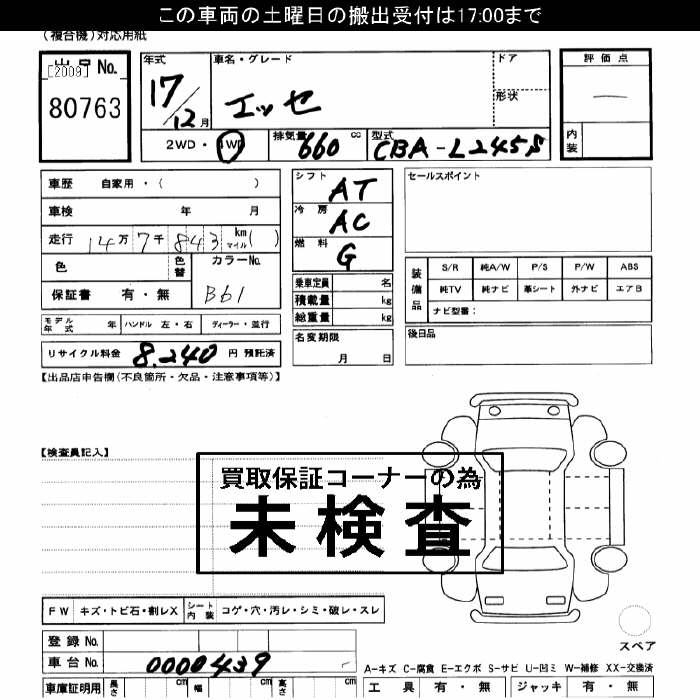 この車両の土曜日の搬出受付は17:00まで
(複合機)対応用紙
[2009] No.
80763
年式 17/12月
車名・グレード エッセ
ドア
形状
評価点
内装
2WD・4WD
排気量 660 cc
型式 CBA-L245S
車歴 自家用・( )
車検 年 月
走行 14万7千843 km マイル( )
色 色替 カラーNo.
B61
保証書 有・無
モデル年式 年 ハンドル 左・右 ディーラー・並行
リサイクル料金 8,240 円 預託済
シフト AT
冷房 AC
燃料 G
乗車定員 名
積載量 kg
総重量 kg
名変期限
月 日
セールスポイント
装備品 S/R 純A/W P/S P/W ABS
純TV 純ナビ 革シート 外ナビ エアB
ナビ型番:
後日品
【出品店申告欄(不良箇所・欠品・注意事項等)】
【検査員記入】
買取保証コーナーの為
未検査
FW キズ・トビ石・割レX シート内装 コゲ・穴・汚レ・シミ・破レ・スレ
登録No.
車台No. 0000439
車庫証明用 長さ cm 幅 cm 高さ cm
スペア
A-キズ C-腐食 E-エクボ S-サビ U-凹ミ W-補修 XX-交換済
工具 有・無 ジャッキ 有・無